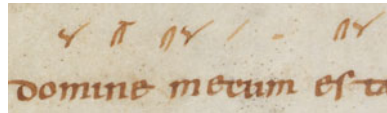 domine mecum est